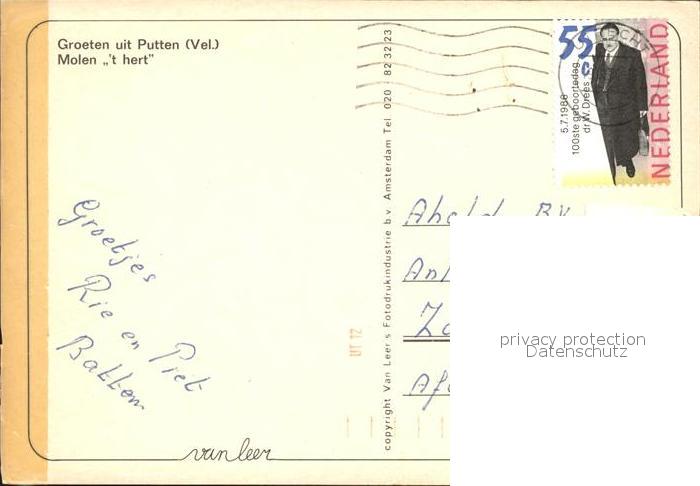 Groeten uit Putten (Vel.)
Molen „'t hert"
Groetjes
Rie en Piet
Bakker
van leer
copyright Van Leer's Fotodrukindustrie b.v. Amsterdam Tel. 020 - 82 32 23
UT 12
55 c
5.7.1986
100ste geboortedag
dr W. Drees
NEDERLAND
Ahold BV
privacy protection
Datenschutz